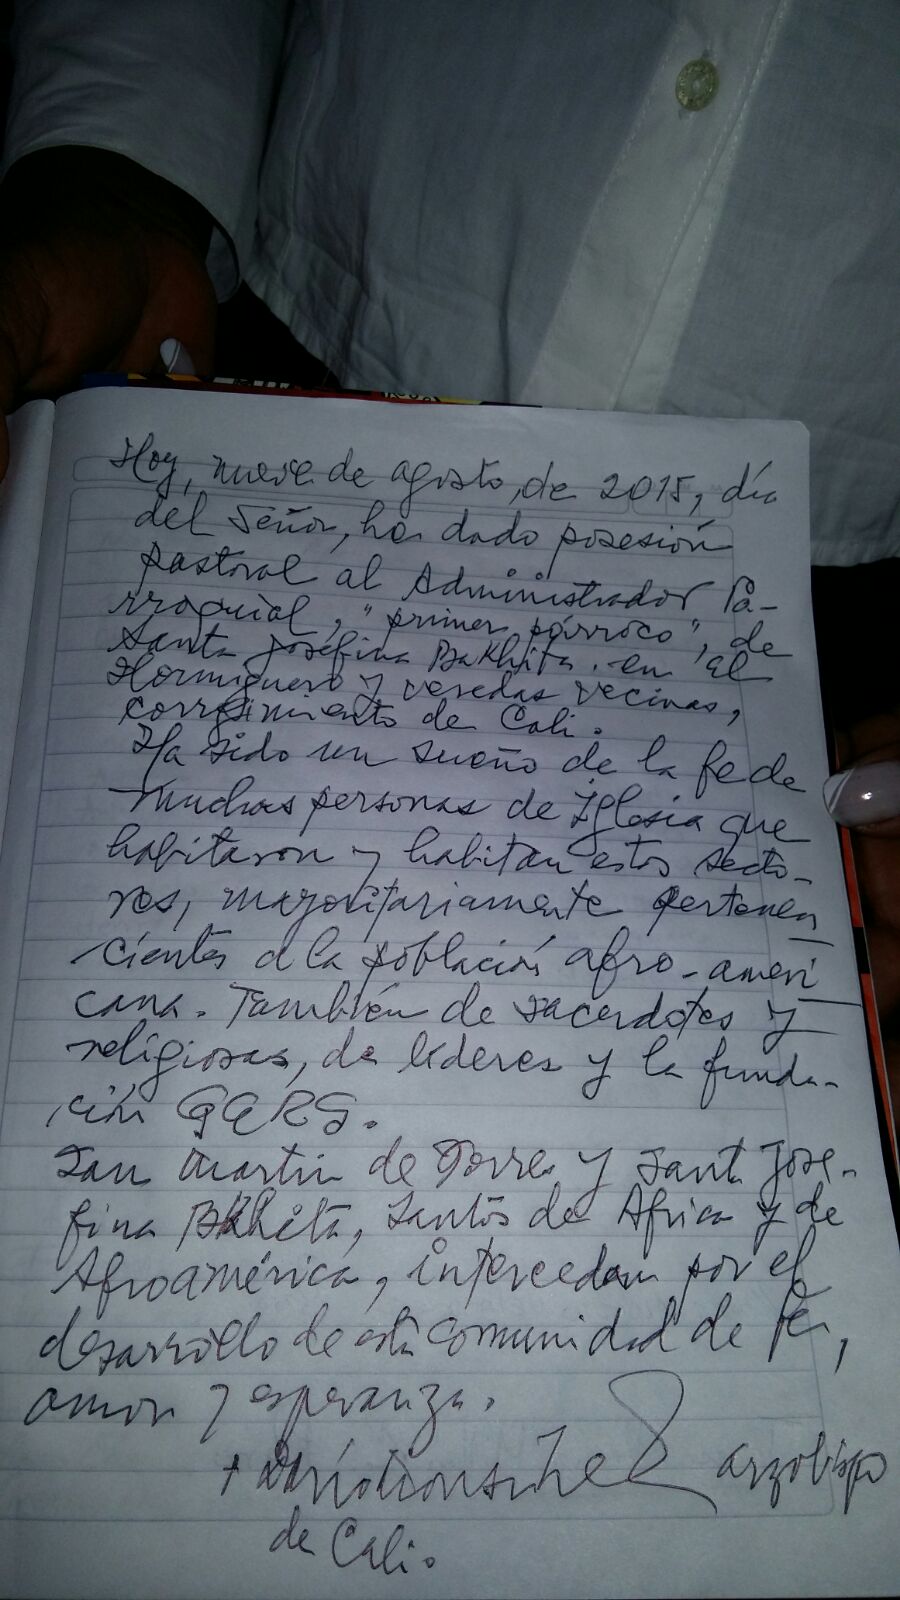 Hoy, nueve de agosto, de 2015, día
del Señor, he dado posesión
pastoral al Administrador Pa-
rroquial, "primer párroco", de
Santa Josefina Bakhita, en el
Hormiguero y veredas vecinas,
corregimiento de Cali.
Ha sido un sueño de la fe de
muchas personas de Iglesia que
habitaron y habitan estos secto-
res, mayoritariamente pertene-
cientes a la población afro-ameri
cana. También de sacerdotes y
religiosas, de líderes y la funda-
ción GERS.
San Martín de Porres y Santa Jose-
fina Bakhita, Santos de Africa y de
Afroamérica, intercedan por el
desarrollo de esta comunidad de fe,
amor y esperanza.
+ arzobispo
de Cali.